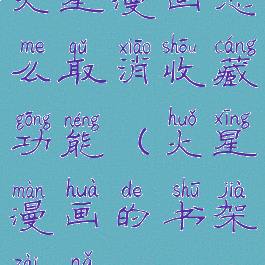 火星漫画怎
me qǔ xiāo shōu cáng
么取消收藏
gōng néng huǒ xīng
功能（火星
màn huà de shū jià
漫画的书架
zài nǎ